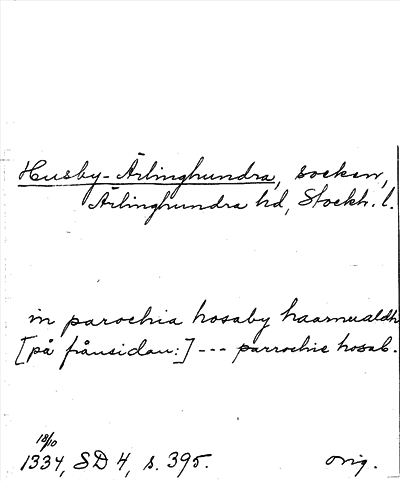 Husby-Ärlinghundra, socken,
Ärlinghundra hd, Stockh. l.
in parochia hosaby haarnualdh
[på frånsidan:] --- parrochie hosab.
18/10
1334, SD 4, s. 395. orig.